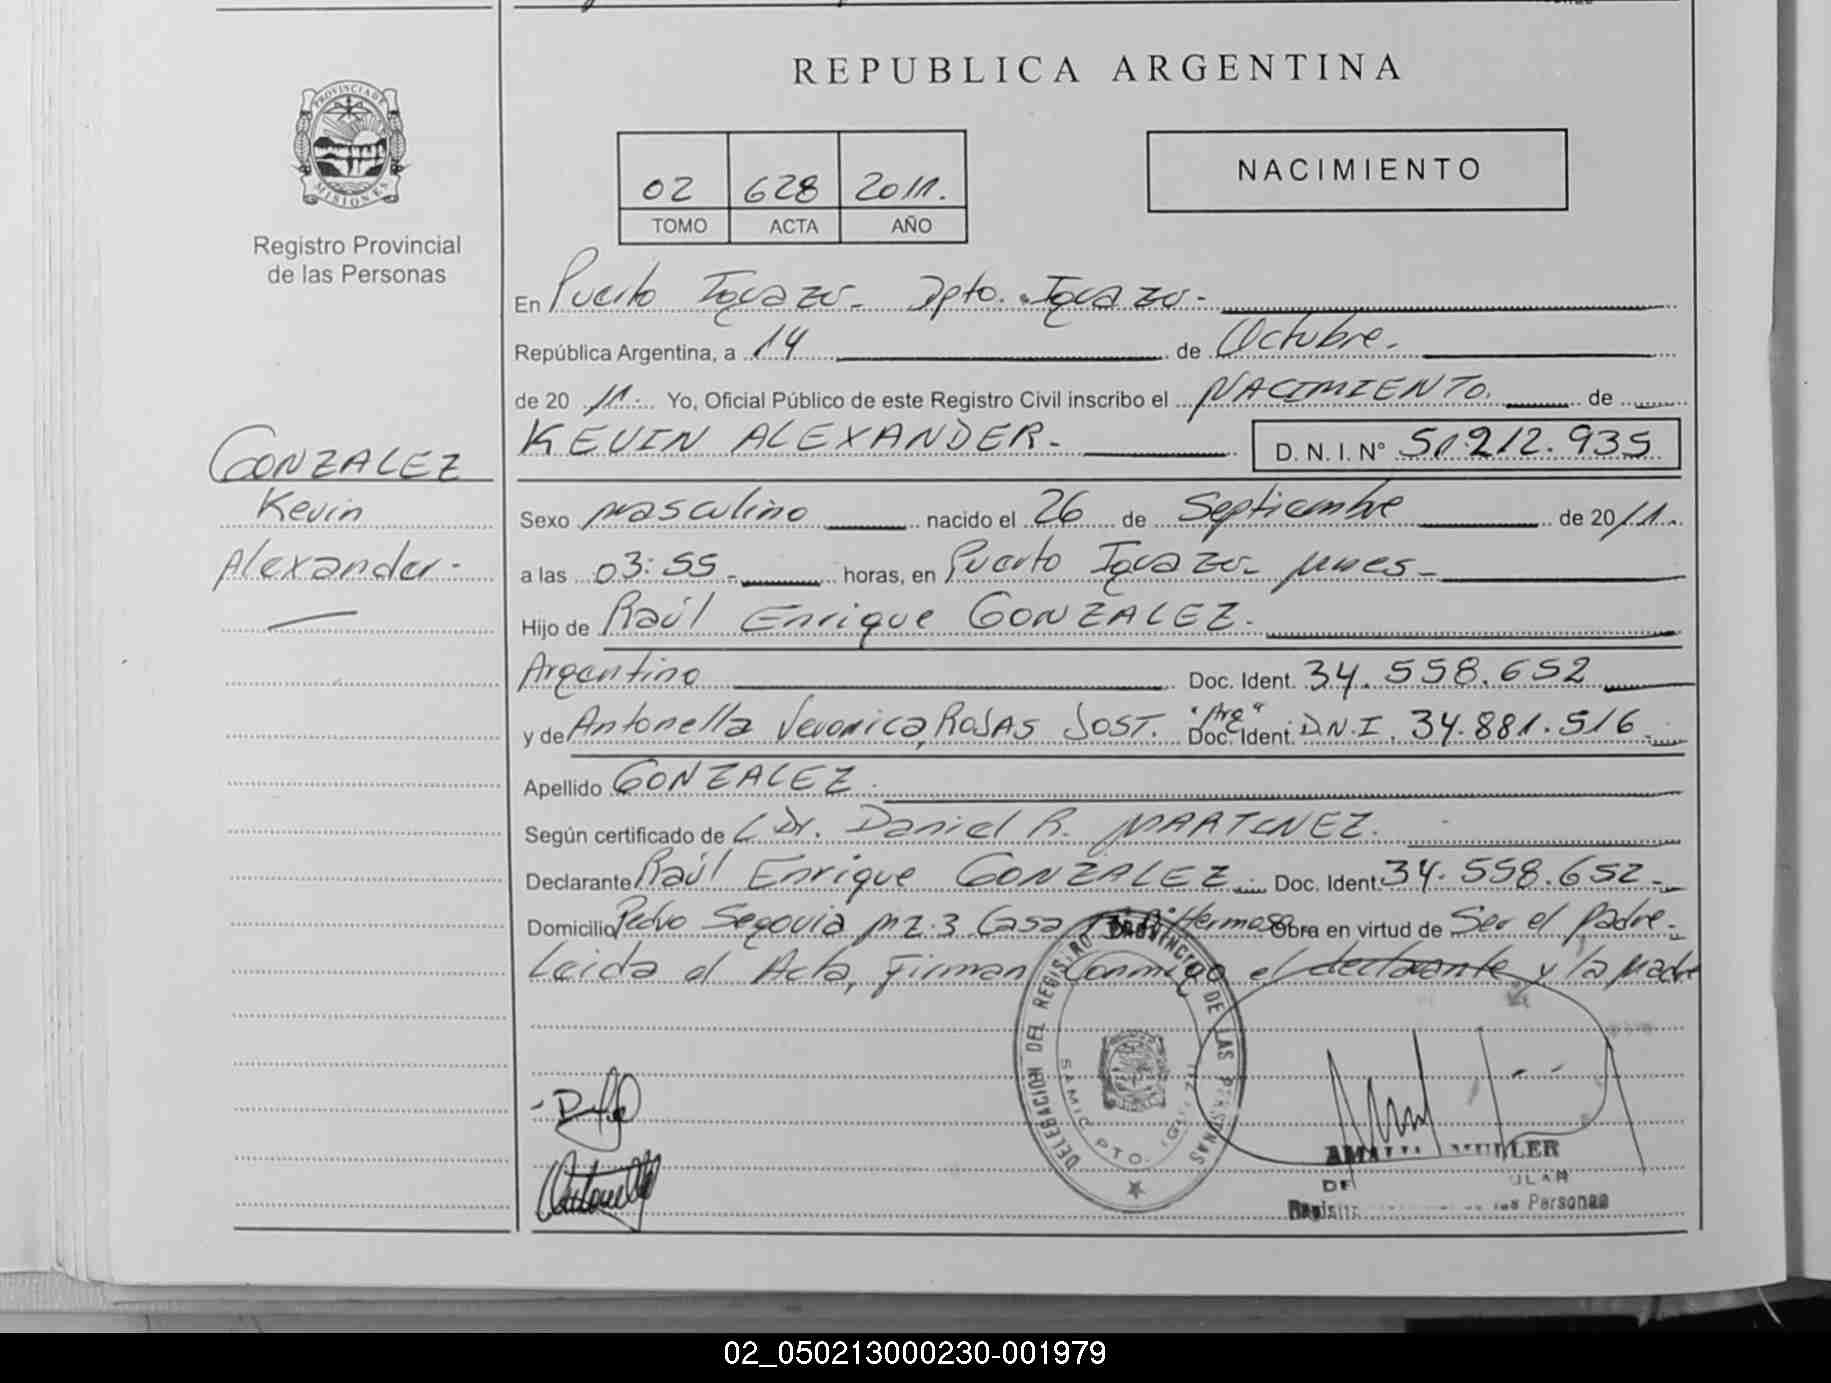 REPUBLICA ARGENTINA
PROVINCIA DE
MISIONES
Registro Provincial
de las Personas
NACIMIENTO
02 628 2011.
TOMO ACTA AÑO
En Puerto Iguazú - Dpto. Iguazú -
República Argentina, a 14 de Octubre.
de 20 11. Yo, Oficial Público de este Registro Civil inscribo el NACIMIENTO. de
KEVIN ALEXANDER. D. N. I. N° 51.212.935
GONZALEZ
Kevin
Alexander.-
Sexo masculino nacido el 26 de Septiembre de 20 11.
a las 03:55 horas, en Puerto Iguazú
Hijo de Raúl Enrique GONZALEZ.
Argentino Doc. Ident. 34.558.652
y de Antonella Veronica, ROJAS JOST. "Arg" Doc. Ident. D.N.I. 34.881.516
Apellido GONZALEZ.
Según certificado de Dr. Daniel R. MARTINEZ.
Declarante Raúl Enrique GONZALEZ Doc. Ident. 34.558.652
Domicilio Pedro Segovia mz. 3 Casa Hermoso Obra en virtud de Ser el padre.-
Leida el Acta, Firman Conmigo el declarante y la Madre
DELEGACION DEL REGISTRO PROVINCIAL DE LAS PERSONAS
SAMIC PTO. IGUAZU
MULLER
Personas
02_050213000230-001979